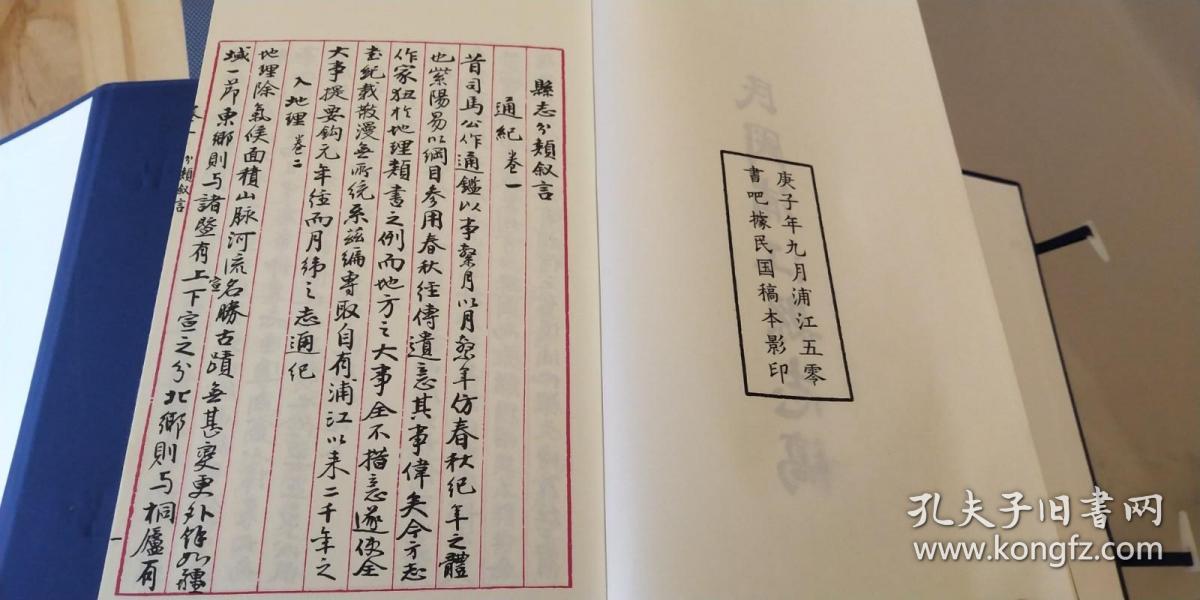 庚子年九月浦江五零
書吧據民国稿本影印
縣志分類敘言
通紀 卷一
昔司馬公作通鑑以事繫月以月繫年仿春秋紀年之體
也紫陽易以綱目參用春秋經傳遺意其事偉矣今方志
作家狃於地理類書之例而地方之大事全不措意遂使全
書紀載散漫無所統系茲編專取自有浦江以来二千年之
大事提要鈎元年经而月緯之志通紀
入地理 卷二
地理除氣候面積山脉河流名勝古蹟無甚变更外餘如疆
域一節東鄉則与諸暨有上下宣之分北鄉則与桐廬有
分類敘言
一
孔夫子旧书网
www.kongfz.com